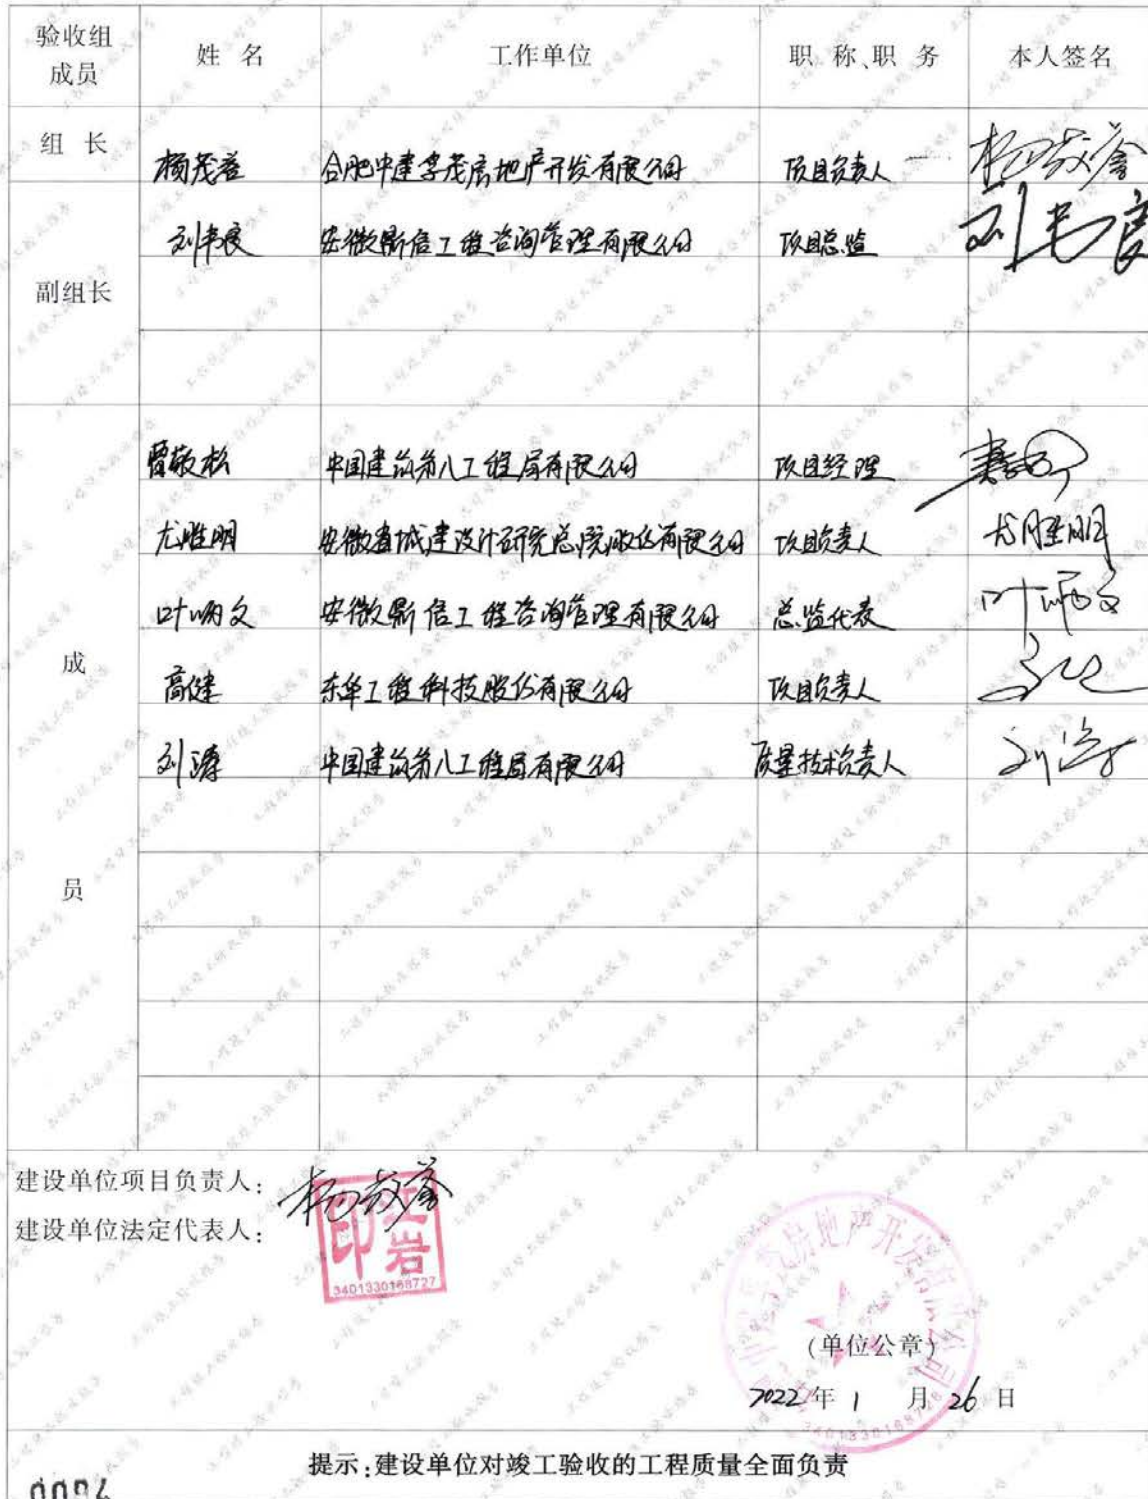 验收组成员 姓 名 工作单位 职 称、职 务 本人签名
组 长 杨茂誉 合肥中建孚茂房地产开发有限公司 项目负责人
副组长 刘韦良 安徽鼎信工程咨询管理有限公司 项目总监 刘韦良
成员
曹敬松 中国建筑第八工程局有限公司 项目经理
尤胜明 安徽省城建设计研究总院股份有限公司 项目负责人 尤胜明
叶炳文 安徽鼎信工程咨询管理有限公司 总监代表 叶炳文
高健 东华工程科技股份有限公司 项目负责人
刘涛 中国建筑第八工程局有限公司 质量技术负责人 刘涛
建设单位项目负责人:
建设单位法定代表人:
江岩印
3401330168727
(单位公章)
2022 年 1 月 26 日
提示:建设单位对竣工验收的工程质量全面负责